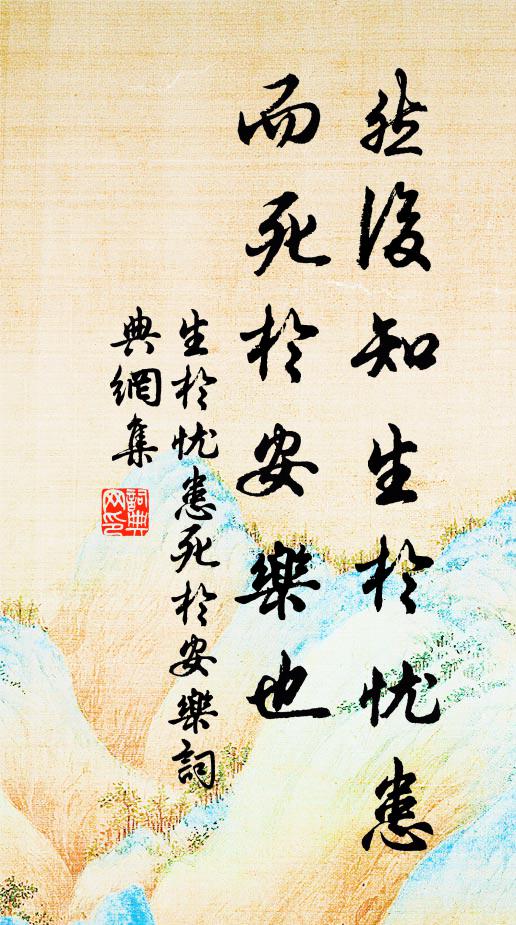 然後知生於忧患
而死於安樂也
生於忧患死於安樂詞
典網集
詞典網印